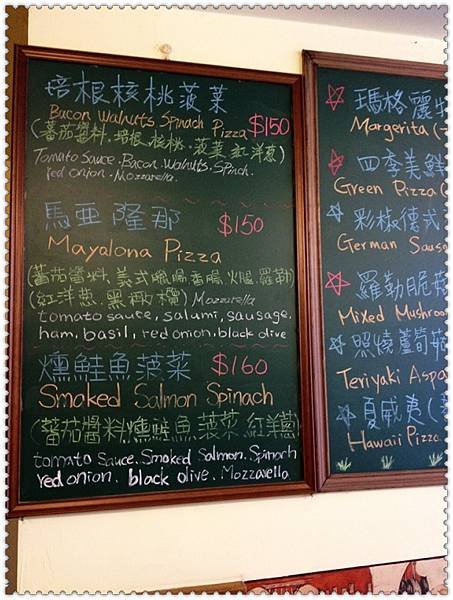 培根核桃菠菜
Bacon Walnuts Spinach Pizza $150
(蕃茄醬料.培根.核桃.菠菜.紅洋蔥)
Tomato Sauce. Bacon. Walnuts. Spinch.
red onion. Mozzarella.
馬亞隆那 $150
Mayalona Pizza
(蕃茄醬料.義式臘腸香腸.火腿.羅勒)
(紅洋蔥.黑橄欖) Mozzarella
tomato sauce, salami, sausage,
ham, basil, red onion, black olive
燻鮭魚菠菜 $160
Smoked Salmon Spinach
(蕃茄醬料燻鮭魚菠菜紅洋蔥)
tomato sauce. Smoked Salmon. Spinach
red onion. black olive. Mozzarella
瑪格麗特
Margerita
四季美鮮
Green Pizza
彩椒德式
German Sausa
羅勒脆菇
Mixed Mushroo
照燒蘆筍菇
Teriyaki Aspa
夏威夷
Hawaii Pizza